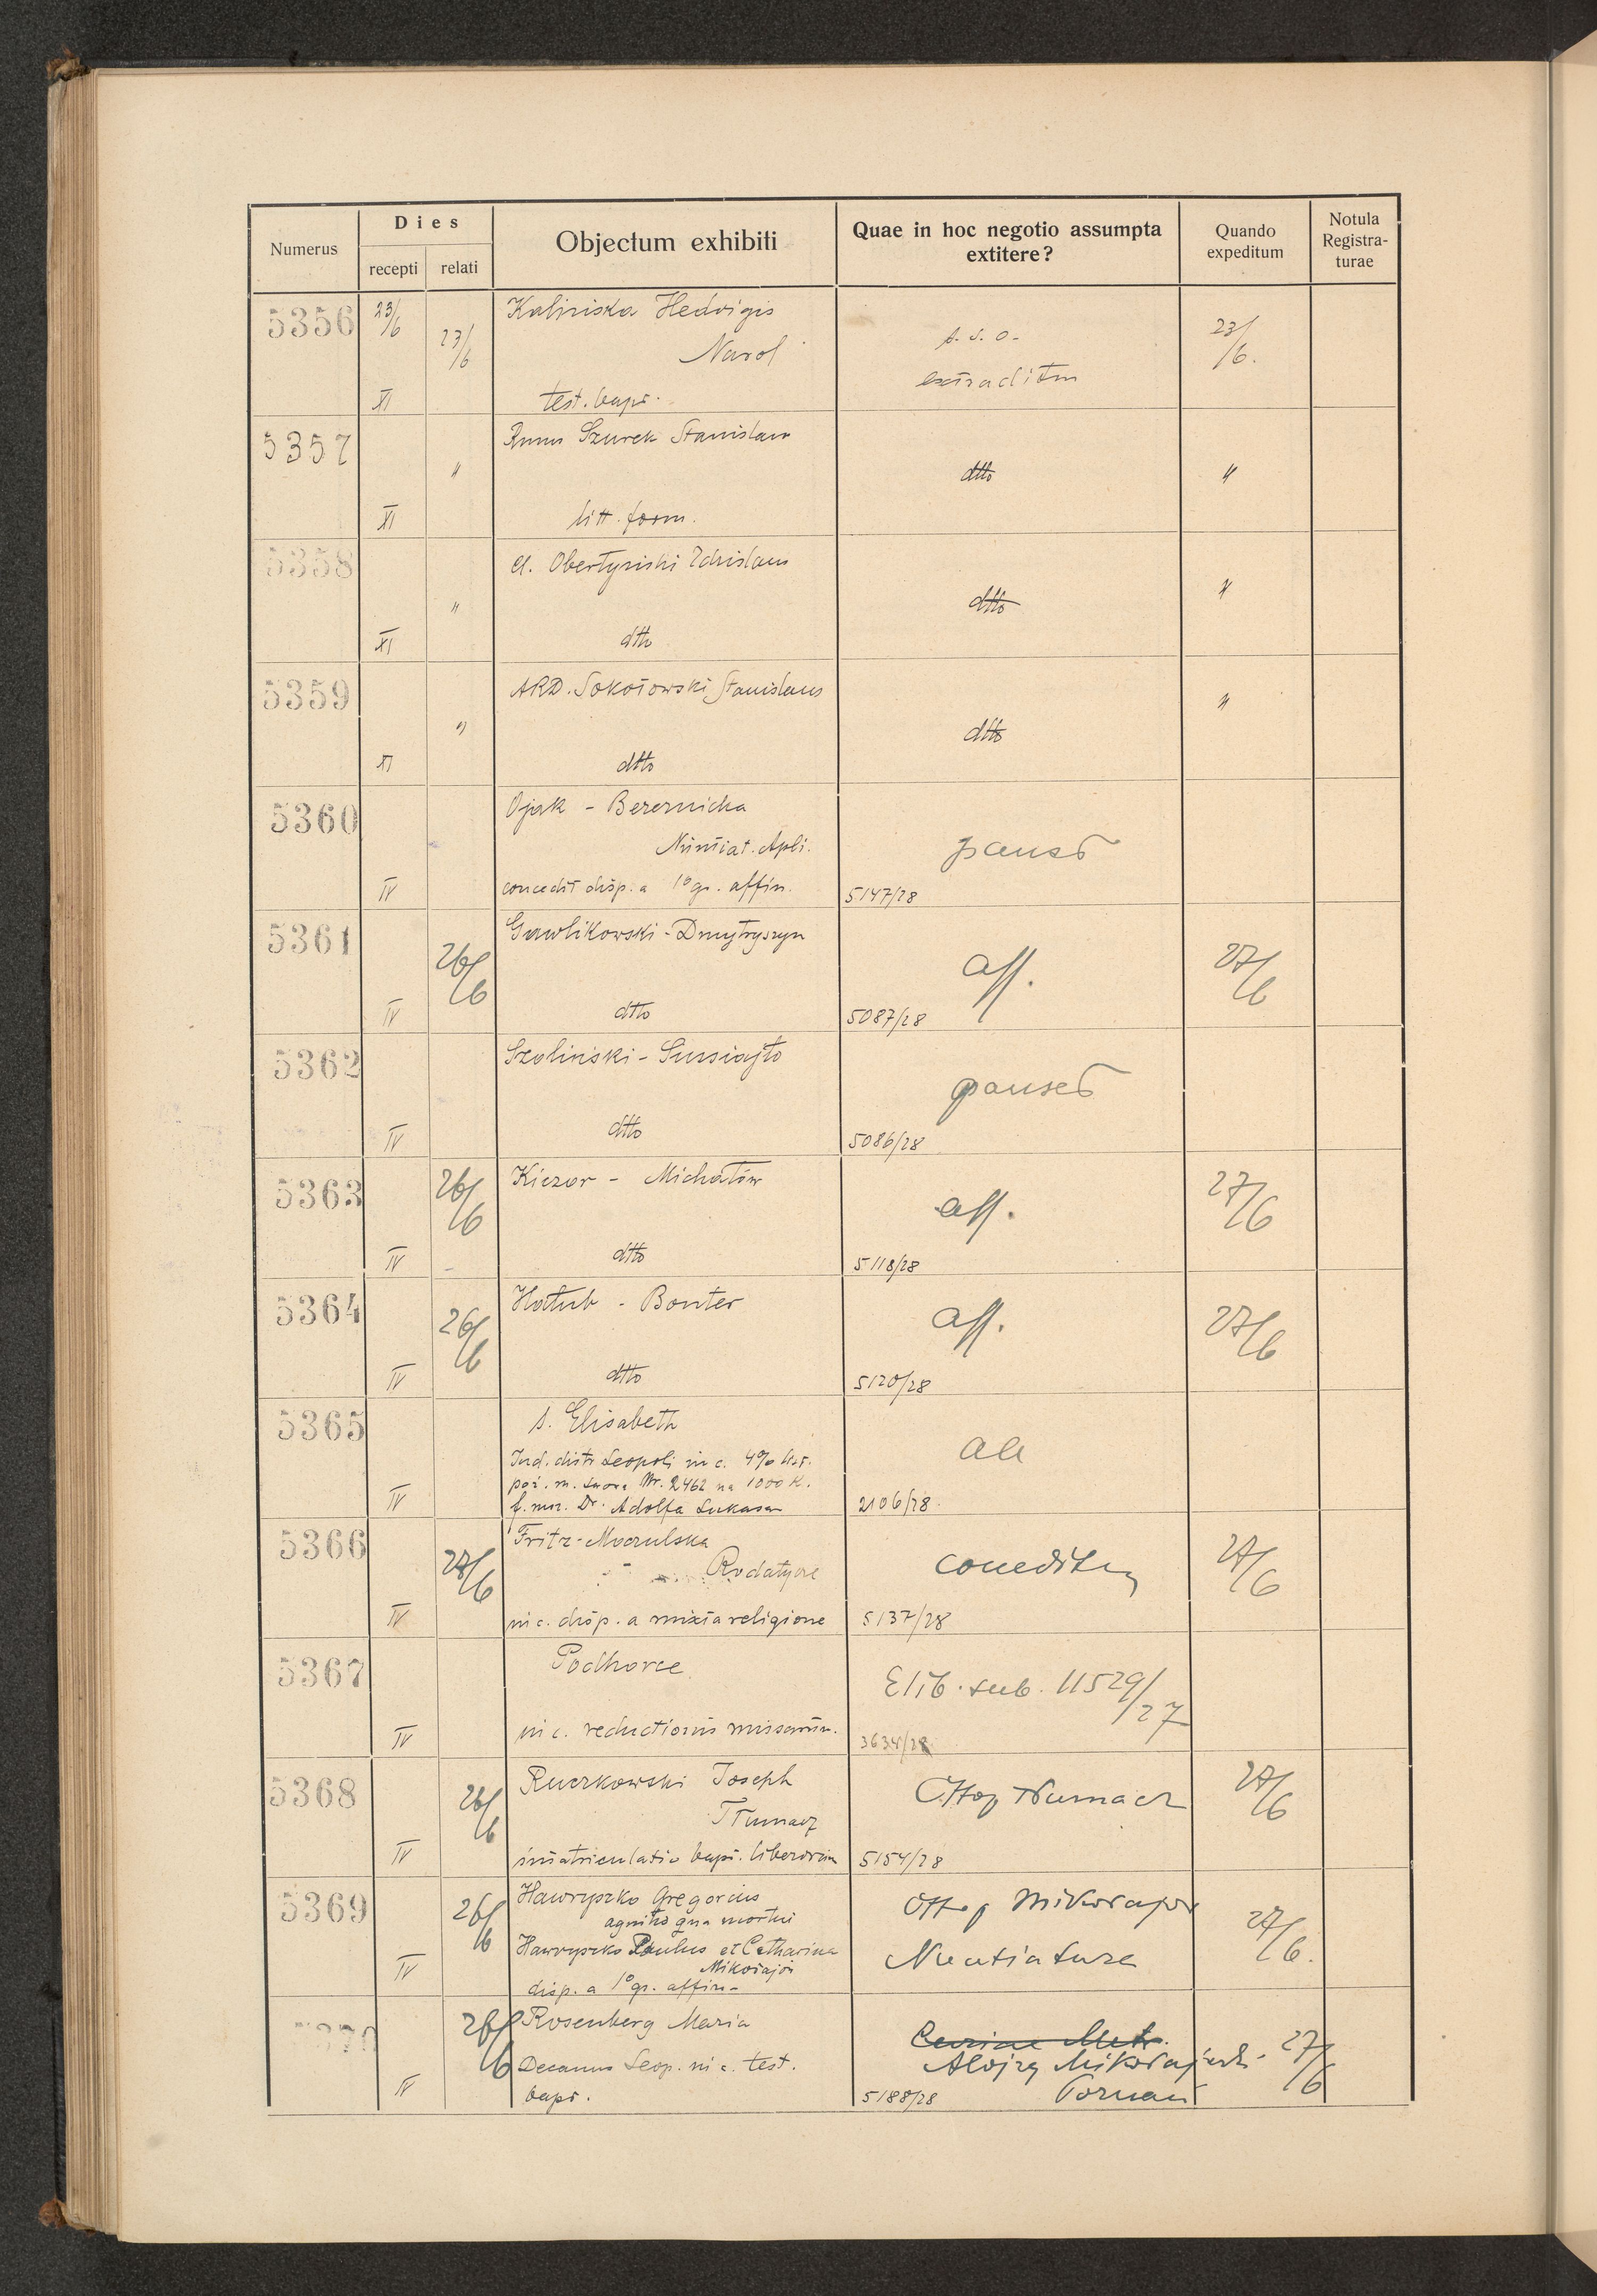 Numerus
Dies
recepti
relati
Objectum exhibiti
Quae in hoc negotio assumpta extitere?
Quando expeditum
Notula Registra-turae
5356 23/6 23/6 Kalińska Hedvigis
Narol
XI test. bapt.
s. s. o.
extraditum
23/6.
5357 " Szurek Stanislaus
XI litt. form.
dtto "
5358 " Cl. Obertyński Zdzislaus
XI dtto
dtto "
5359 " ARD. Sokołowski Stanislaus
XI dtto
dtto "
5360 Ojak - Berernicka
Nuntiat. Apli.
IV concedit disp. a 1° gr. affin.
pausat
5147/28
5361 26/6 Gawlikowski - Dmytryszyn
IV dtto
aff.
5087/28
27/6
5362 Szoliński -
IV dtto
pausat
5086/28
5363 26/6 Kiezor - Michałów
IV dtto
aff.
5118/28
27/6
5364 26/6 Hałub - Bonter
IV dtto
aff.
5120/28
27/6
5365 s. Elisabeth
Leopoli in c. 4%
poż. m. Lwowa Nr. 2462 na 1000 K.
IV Dr. Adolfa Lukasa
aa
2106/28.
5366 27/6 Fritz - Moczulska
Rodatycze
IV in c. disp. a mixta religione
conceditur
5137/28
27/6
5367 Podhorce
IV in c. reductionis missarum.
Elib. sub. 11529/27
3634/28
5368 26/6 Ruczkowski Joseph
Tłumacz
IV immatriculatio bapt. liberorum
Offop Tłumacz
5154/28
27/6
5369 26/6 Hawryszko Gregorius
agnitio qua mortui
Hawryszko Paulus et Catharina
Mikołajów
IV disp. a 1° gr. affin.
Offop Mikołajów
Nuntiatura
27/6.
5370 26/6 Rosenberg Maria
Decanus Leop. in c. test.
IV bapt.
Alojzy
5188/28 Poznań
27/6